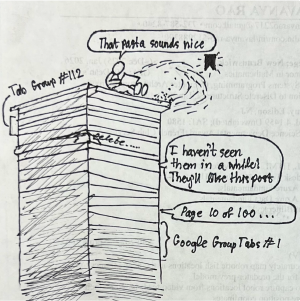 That pasta sounds nice
Tab Group #112
I haven't seen
them in a while!
They'll like this post
Page 10 of 100 ...
Google Group Tabs #1